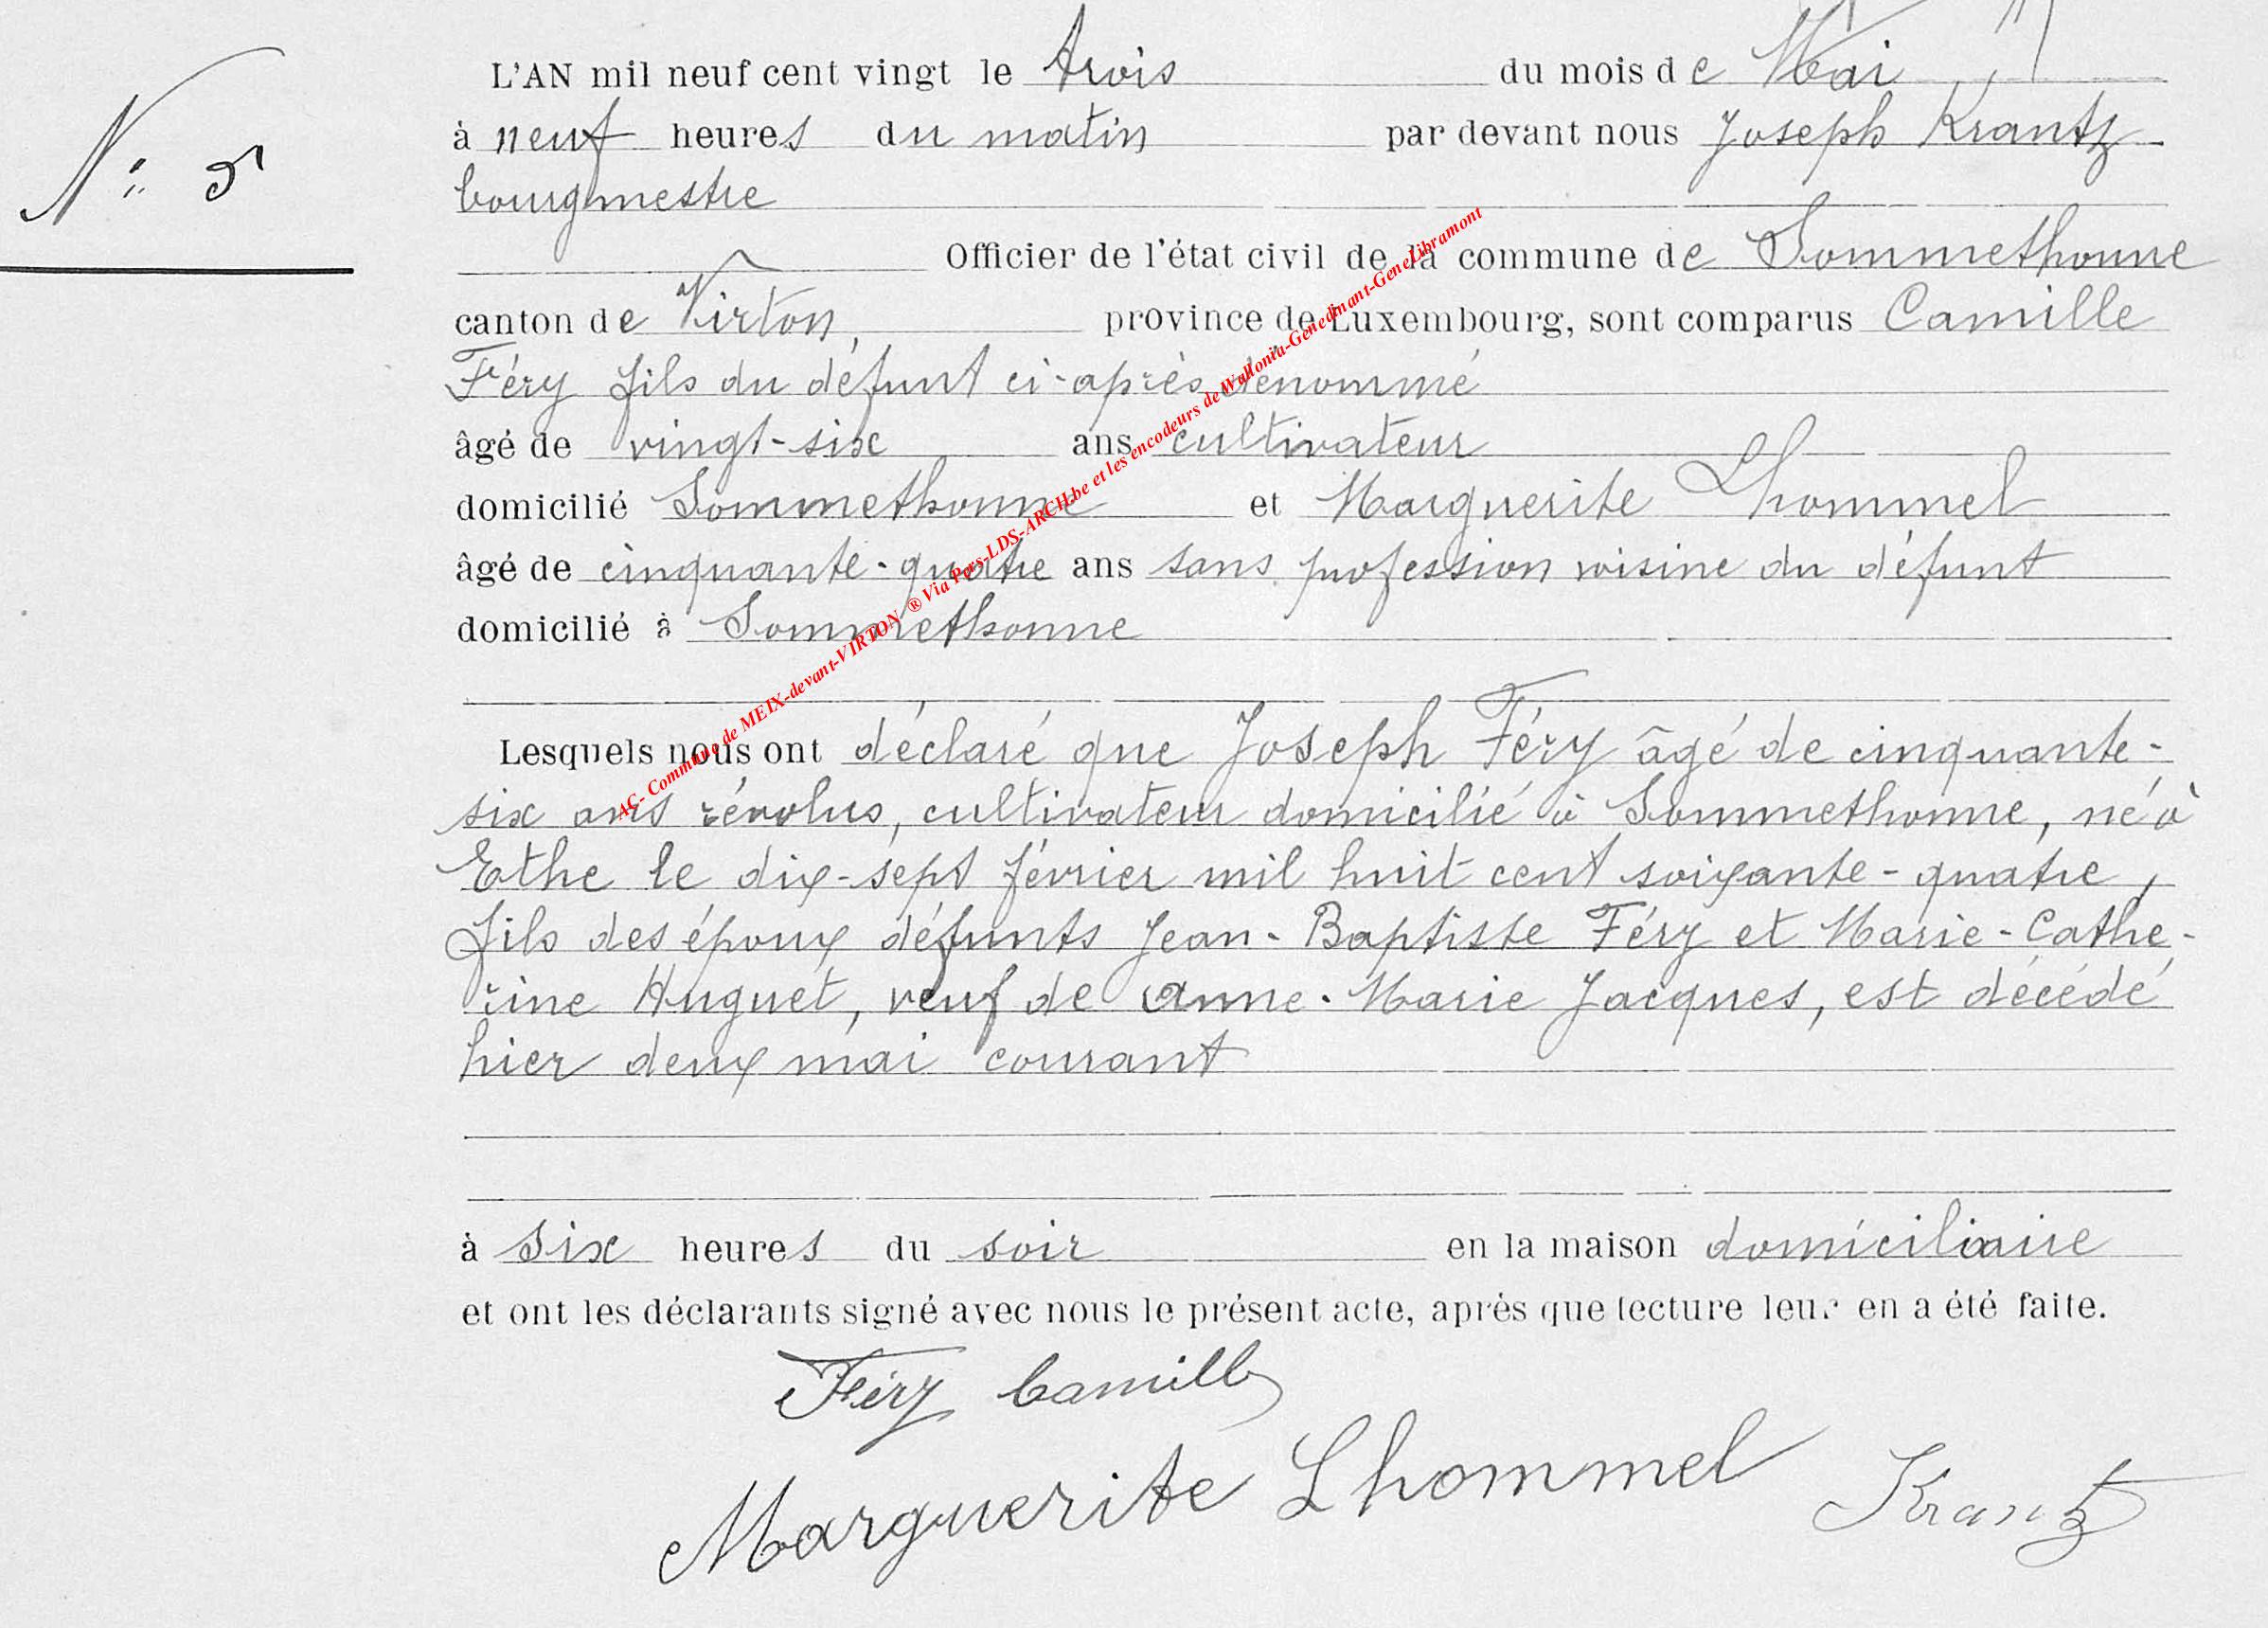 L'AN mil neuf cent vingt le trois du mois de Mai
N° 5
à neuf heures du matin par devant nous Joseph Krantz
bourgmestre
Officier de l'état civil de la commune de Sommethonne
canton de Virton, province de Luxembourg, sont comparus Camille
Féry fils du défunt ci-après dénommé
âgé de vingt-six ans cultivateur
domicilié Sommethonne et Marguerite Lhommel
âgé de cinquante-quatre ans sans profession voisine du défunt
domicilié à Sommethonne
Lesquels nous ont déclaré que Joseph Féry âgé de cinquante-
six ans révolus, cultivateur domicilié à Sommethonne, né à
Ethe le dix-sept février mil huit cent soixante-quatre,
fils des époux défunts Jean-Baptiste Féry et Marie-Cathe-
rine Huguet, veuf de Anne-Marie Jacques, est décédé
hier deux mai courant
à six heures du soir en la maison domiciliaire
et ont les déclarants signé avec nous le présent acte, après que lecture leur en a été faite.
Féry Camille
Marguerite Lhommel Krantz
AC- Commune de MEIX-devant-VIRTON ® Via Pers-LDS-ARCH.be et les encodeurs de Wallonia-Genedinant-GeneLibramont